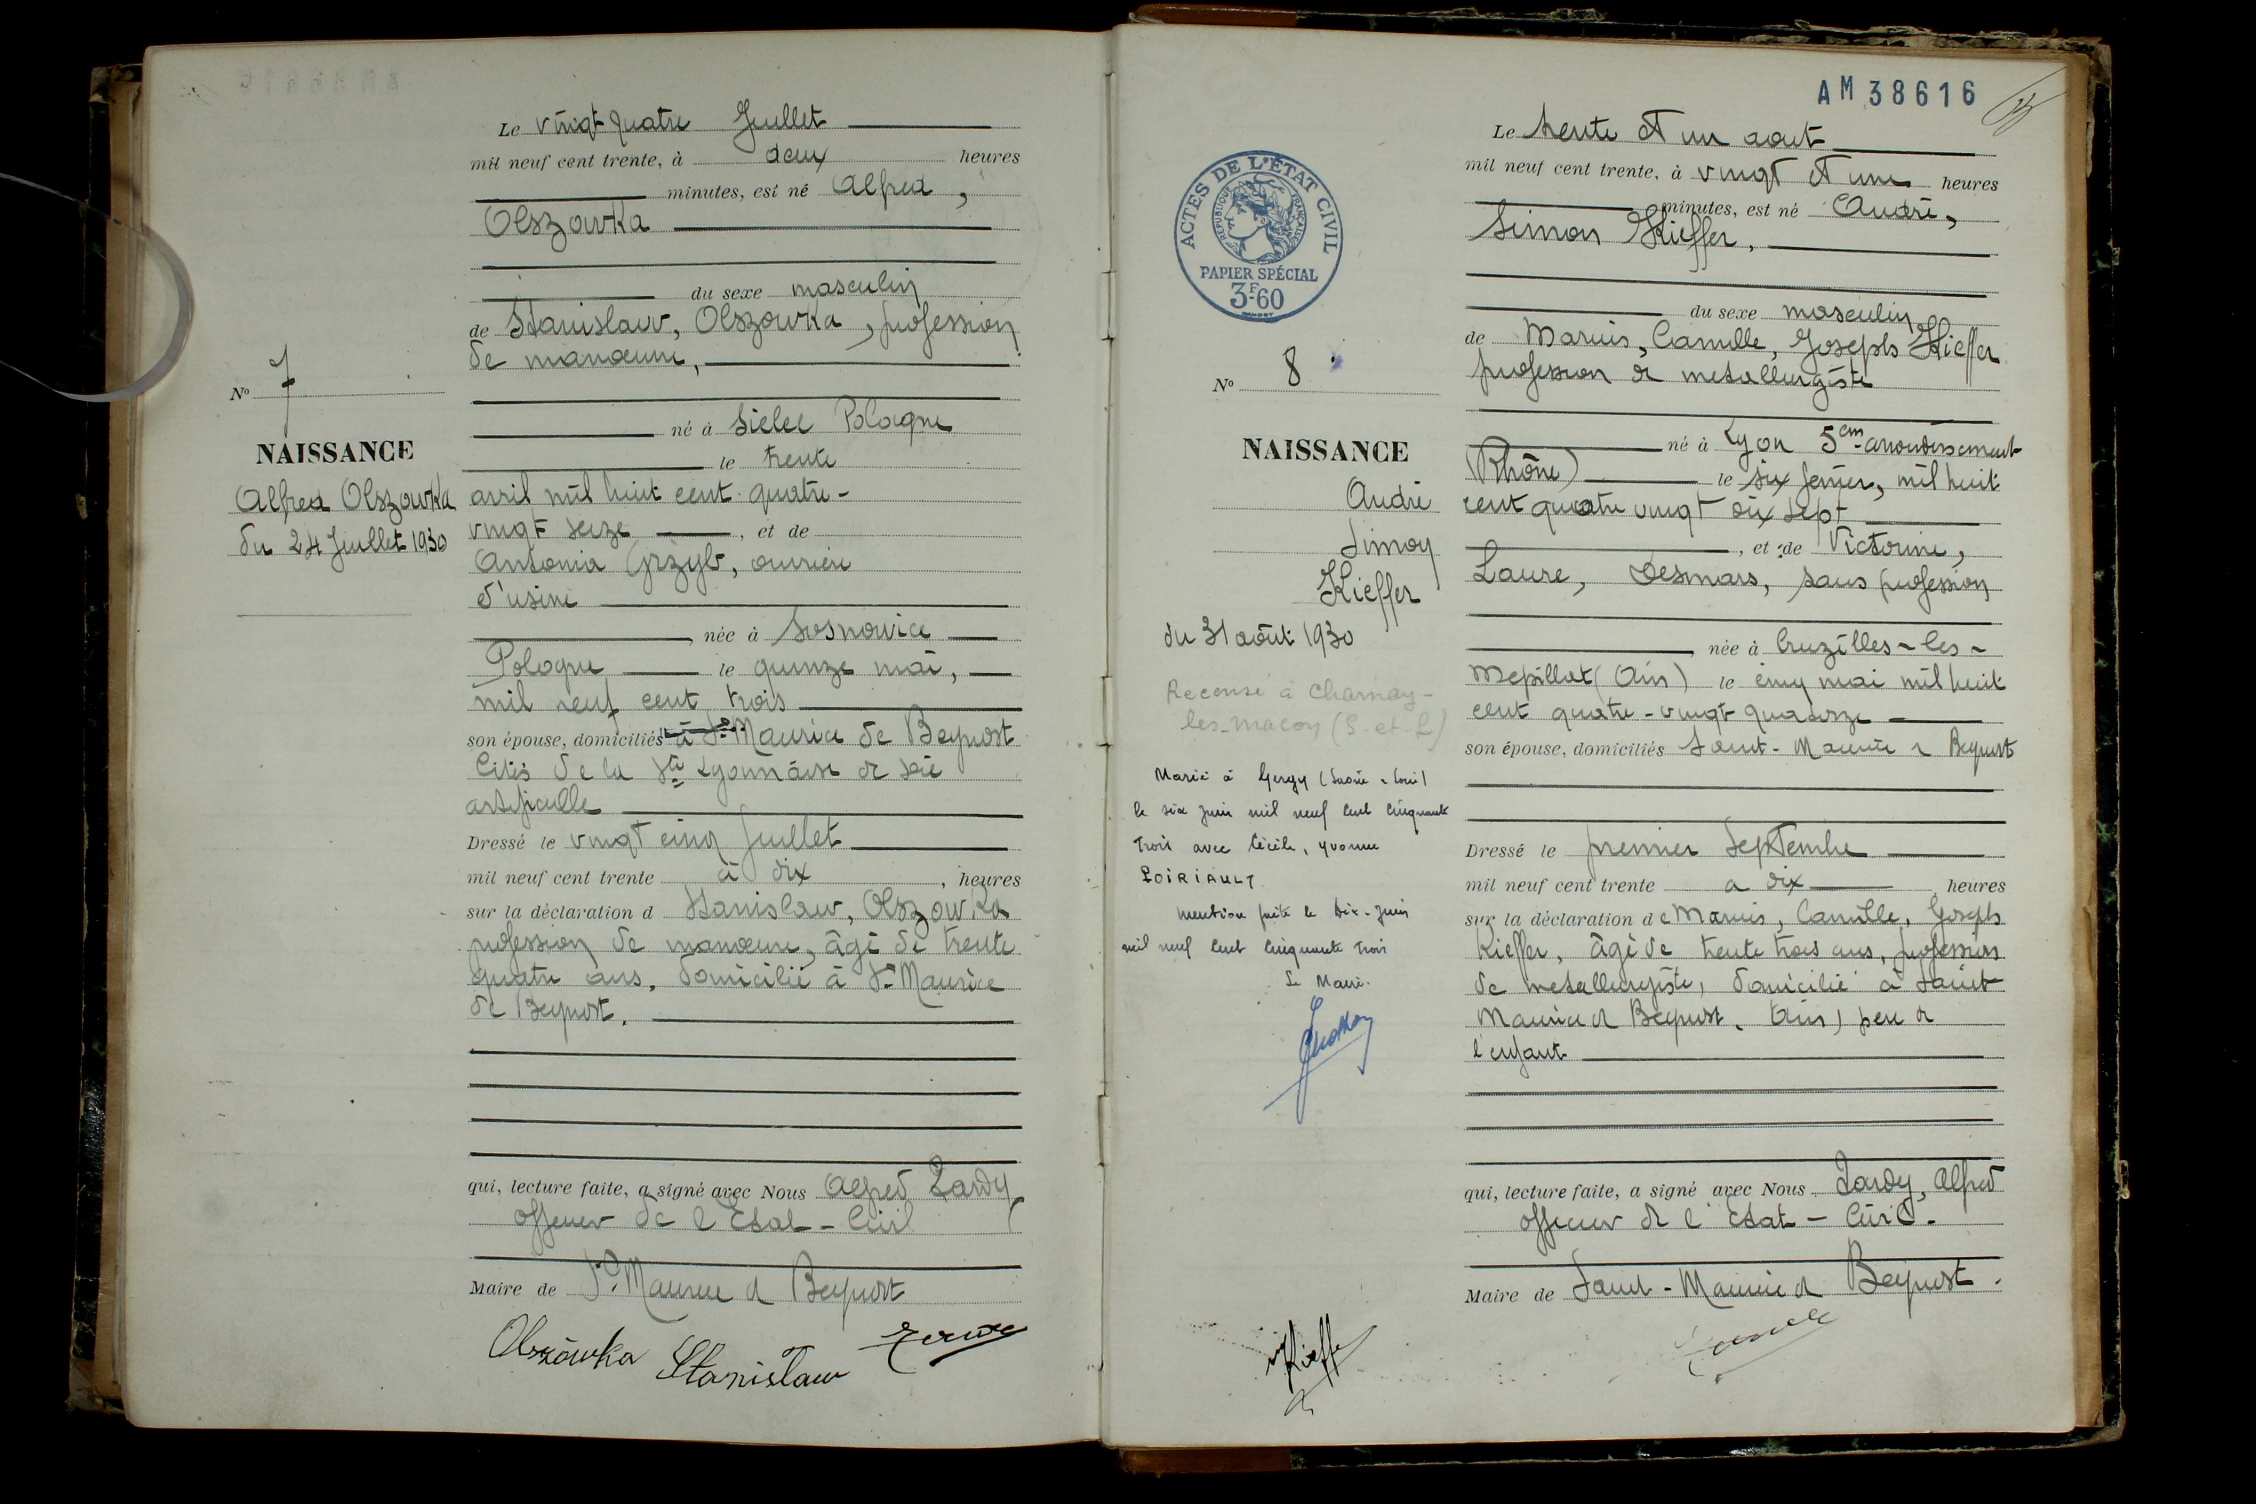 Le vingt quatre Juillet
mil neuf cent trente, à deux heures
minutes, est né Alfred,
Olszowka
du sexe masculin
de Stanislaw, Olszowka, profession
de manœuvre,
né à Sielec Pologne
le trente
avril mil huit cent quatre-
vingt seize, et de
Antonia Grzyb, ouvrière
d'usine
née à Sosnovice
Pologne le quinze mai,
mil neuf cent trois
son épouse, domiciliés à St Maurice de Beynost
Cités de la Sté Lyonnaise de soie
artificielle
Dressé le vingt cinq Juillet
mil neuf cent trente à dix, heures
sur la déclaration d Stanislaw, Olszowka
profession de manœuvre, âgé de trente
quatre ans, domicilié à St Maurice
de Beynost.
qui, lecture faite, a signé avec Nous Alfred Lardy
officier de l'Etat-Civil
Maire de St Maurice d Beynost
Olszówka Stanisław
No 7
NAISSANCE
Alfred Olszowka
du 24 Juillet 1930
AM 38616
ACTES DE L'ÉTAT CIVIL
RÉPUBLIQUE FRANÇAISE
PAPIER SPÉCIAL
3F60
No 8
NAISSANCE
André
Simon
Kieffer
du 31 août 1930
Recensé à Charnay-
les-macon (S. et L)
Marié à Gergy (Saône & Loire)
le six juin mil neuf cent cinquante
trois avec Cécile, Yvonne
LOIRIAULT
mention faite le dix-juin
mil neuf cent cinquante trois
Le Maire.
Le trente et un aout
mil neuf cent trente, à vingt et une heures
minutes, est né André,
Simon Kieffer,
du sexe masculin
de Marius, Camille, Joseph Kieffer
profession de metallurgiste
né à Lyon 5em arrondissement
(Rhône) le six février, mil huit
cent quatre vingt dix sept
, et de Victorine,
Laure, Desmars, sans profession
née à Cruzilles-les-
Mepillat (Ain) le cinq mai mil huit
cent quatre-vingt quatorze
son épouse, domiciliés Saint-Maurice d Beynost
Dressé le premier Septembre
mil neuf cent trente a dix heures
sur la déclaration de Marius, Camille, Joseph
Kieffer, âgé de trente trois ans, profession
de metallurgiste, domicilié à Saint
Maurice d Beynost. (Ain) père de
l'enfant
qui, lecture faite, a signé avec Nous Lardy, Alfred
officier de l'Etat-Civil.
Maire de Saint-Maurice d Beynost.
Kieffer